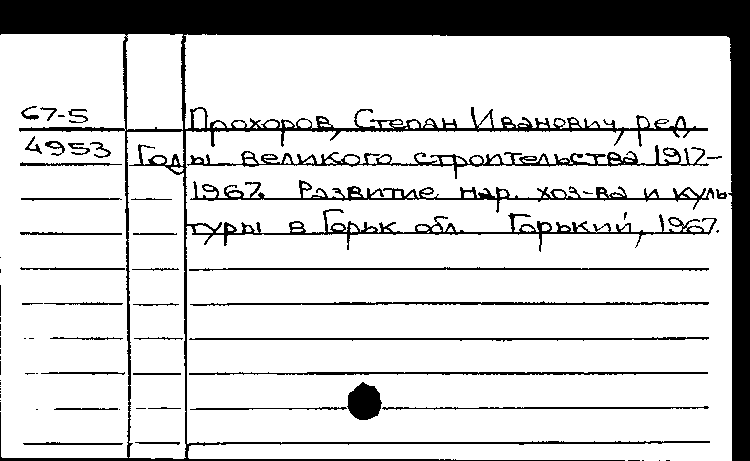 67-5 Прохоров, Степан Иванович, ред.
4953 Годы великого строительства 1917-
1967. Развитие нар. хоз-ва и куль-
туры в Горьк. обл. Горький, 1967.